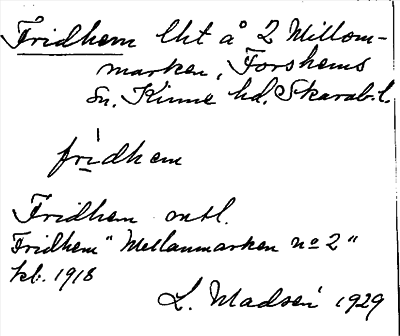 Fridhem lht å 2 Mellom-
marken, Forshems
sn. Kinne hd. Skarab.l.
fridhem
Fridhem ontl.
Fridhem "Mellanmarken no 2"
kb. 1918
L. Madsen 1929